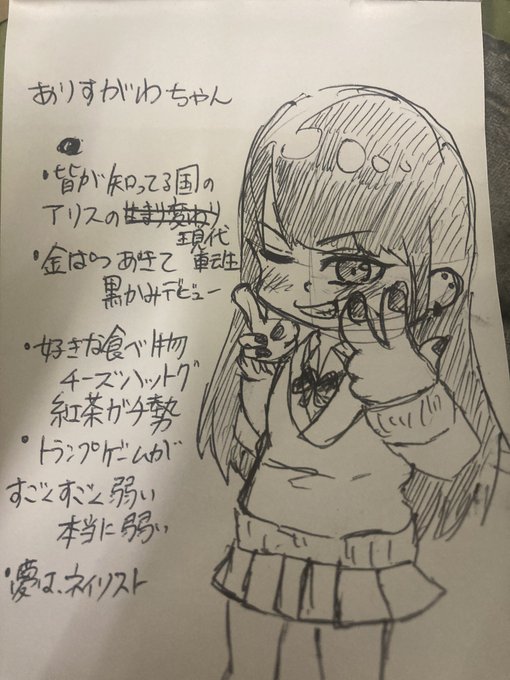 ありすがわちゃん
・皆が知ってる国の
アリスの現代
転生
・金ぱつあきて
黒かみデビュー
・好きな食べ物
チーズハットグ
紅茶ガチ勢
・トランプゲームが
すごくすごく弱い
本当に弱い
・夢は、ネイリスト